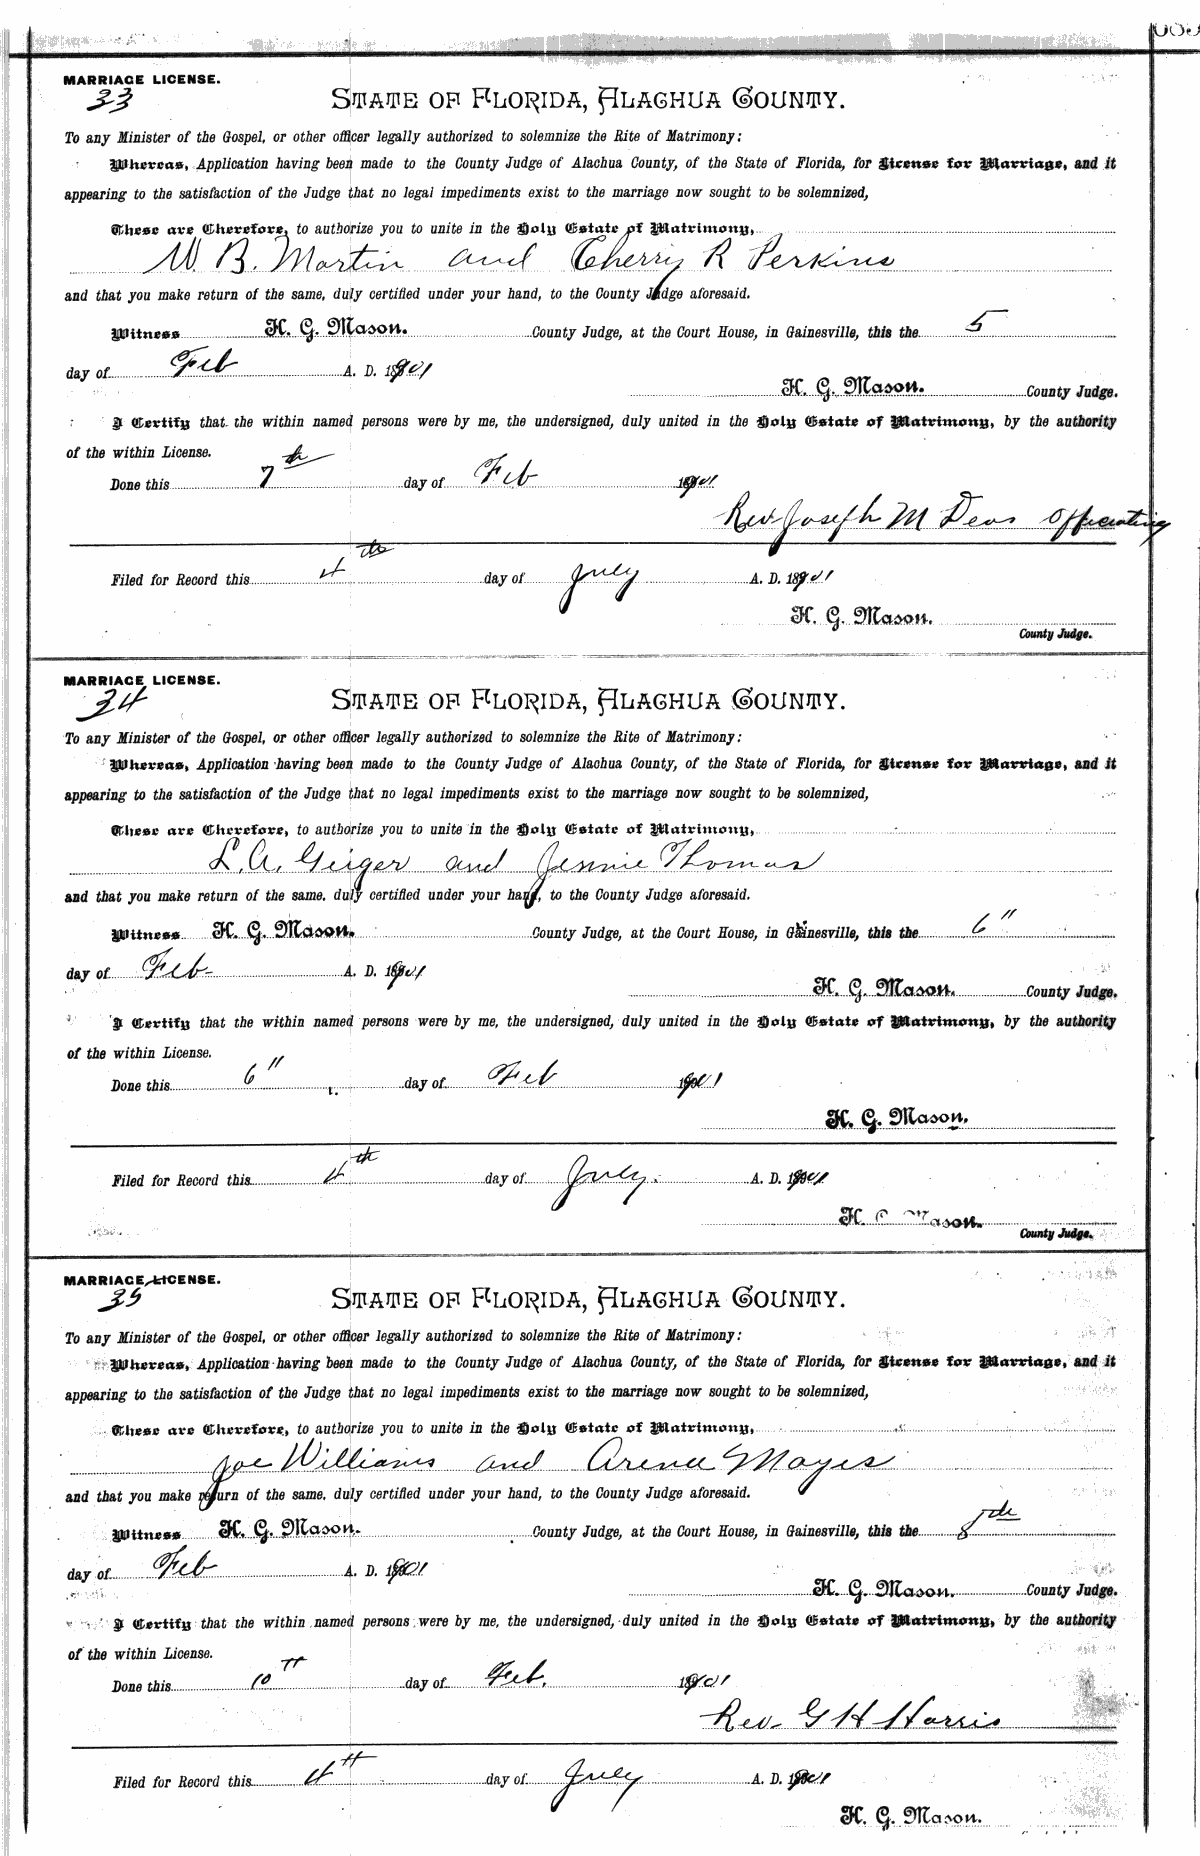 MARRIAGE LICENSE.
33
STATE OF FLORIDA, ALACHUA COUNTY.
To any Minister of the Gospel, or other officer legally authorized to solemnize the Rite of Matrimony:
Whereas, Application having been made to the County Judge of Alachua County, of the State of Florida, for License for Marriage, and it
appearing to the satisfaction of the Judge that no legal impediments exist to the marriage now sought to be solemnized,
These are Therefore, to authorize you to unite in the Holy Estate of Matrimony,
W. B. Martin and Cherry R Perkins
and that you make return of the same, duly certified under your hand, to the County Judge aforesaid.
Witness H. G. Mason. County Judge, at the Court House, in Gainesville, this the 5
day of Feb A. D. 1901
H. G. Mason. County Judge.
I Certify that the within named persons were by me, the undersigned, duly united in the Holy Estate of Matrimony, by the authority
of the within License.
Done this 7th day of Feb 1901
Rev Joseph M Deas Officiating
Filed for Record this 4th day of July A. D. 1901
H. G. Mason.
County Judge.
MARRIAGE LICENSE.
34
STATE OF FLORIDA, ALACHUA COUNTY.
To any Minister of the Gospel, or other officer legally authorized to solemnize the Rite of Matrimony:
Whereas, Application having been made to the County Judge of Alachua County, of the State of Florida, for License for Marriage, and it
appearing to the satisfaction of the Judge that no legal impediments exist to the marriage now sought to be solemnized,
These are Therefore, to authorize you to unite in the Holy Estate of Matrimony,
L. A. Geiger and Jennie Thomas
and that you make return of the same, duly certified under your hand, to the County Judge aforesaid.
Witness H. G. Mason. County Judge, at the Court House, in Gainesville, this the 6"
day of Feb- A. D. 1901
H. G. Mason. County Judge.
I Certify that the within named persons were by me, the undersigned, duly united in the Holy Estate of Matrimony, by the authority
of the within License.
Done this 6" day of Feb 1901
H. G. Mason.
Filed for Record this 4th day of July. A. D. 1901
H. G. Mason.
County Judge.
MARRIAGE LICENSE.
35
STATE OF FLORIDA, ALACHUA COUNTY.
To any Minister of the Gospel, or other officer legally authorized to solemnize the Rite of Matrimony:
Whereas, Application having been made to the County Judge of Alachua County, of the State of Florida, for License for Marriage, and it
appearing to the satisfaction of the Judge that no legal impediments exist to the marriage now sought to be solemnized,
These are Therefore, to authorize you to unite in the Holy Estate of Matrimony,
Joe Williams and Arena Mayes
and that you make return of the same, duly certified under your hand, to the County Judge aforesaid.
Witness H. G. Mason. County Judge, at the Court House, in Gainesville, this the 8th
day of Feb A. D. 1901
H. G. Mason. County Judge.
I Certify that the within named persons were by me, the undersigned, duly united in the Holy Estate of Matrimony, by the authority
of the within License.
Done this 10th day of Feb. 1901
Rev. G H Harris
Filed for Record this 4th day of July A. D. 1901
H. G. Mason.